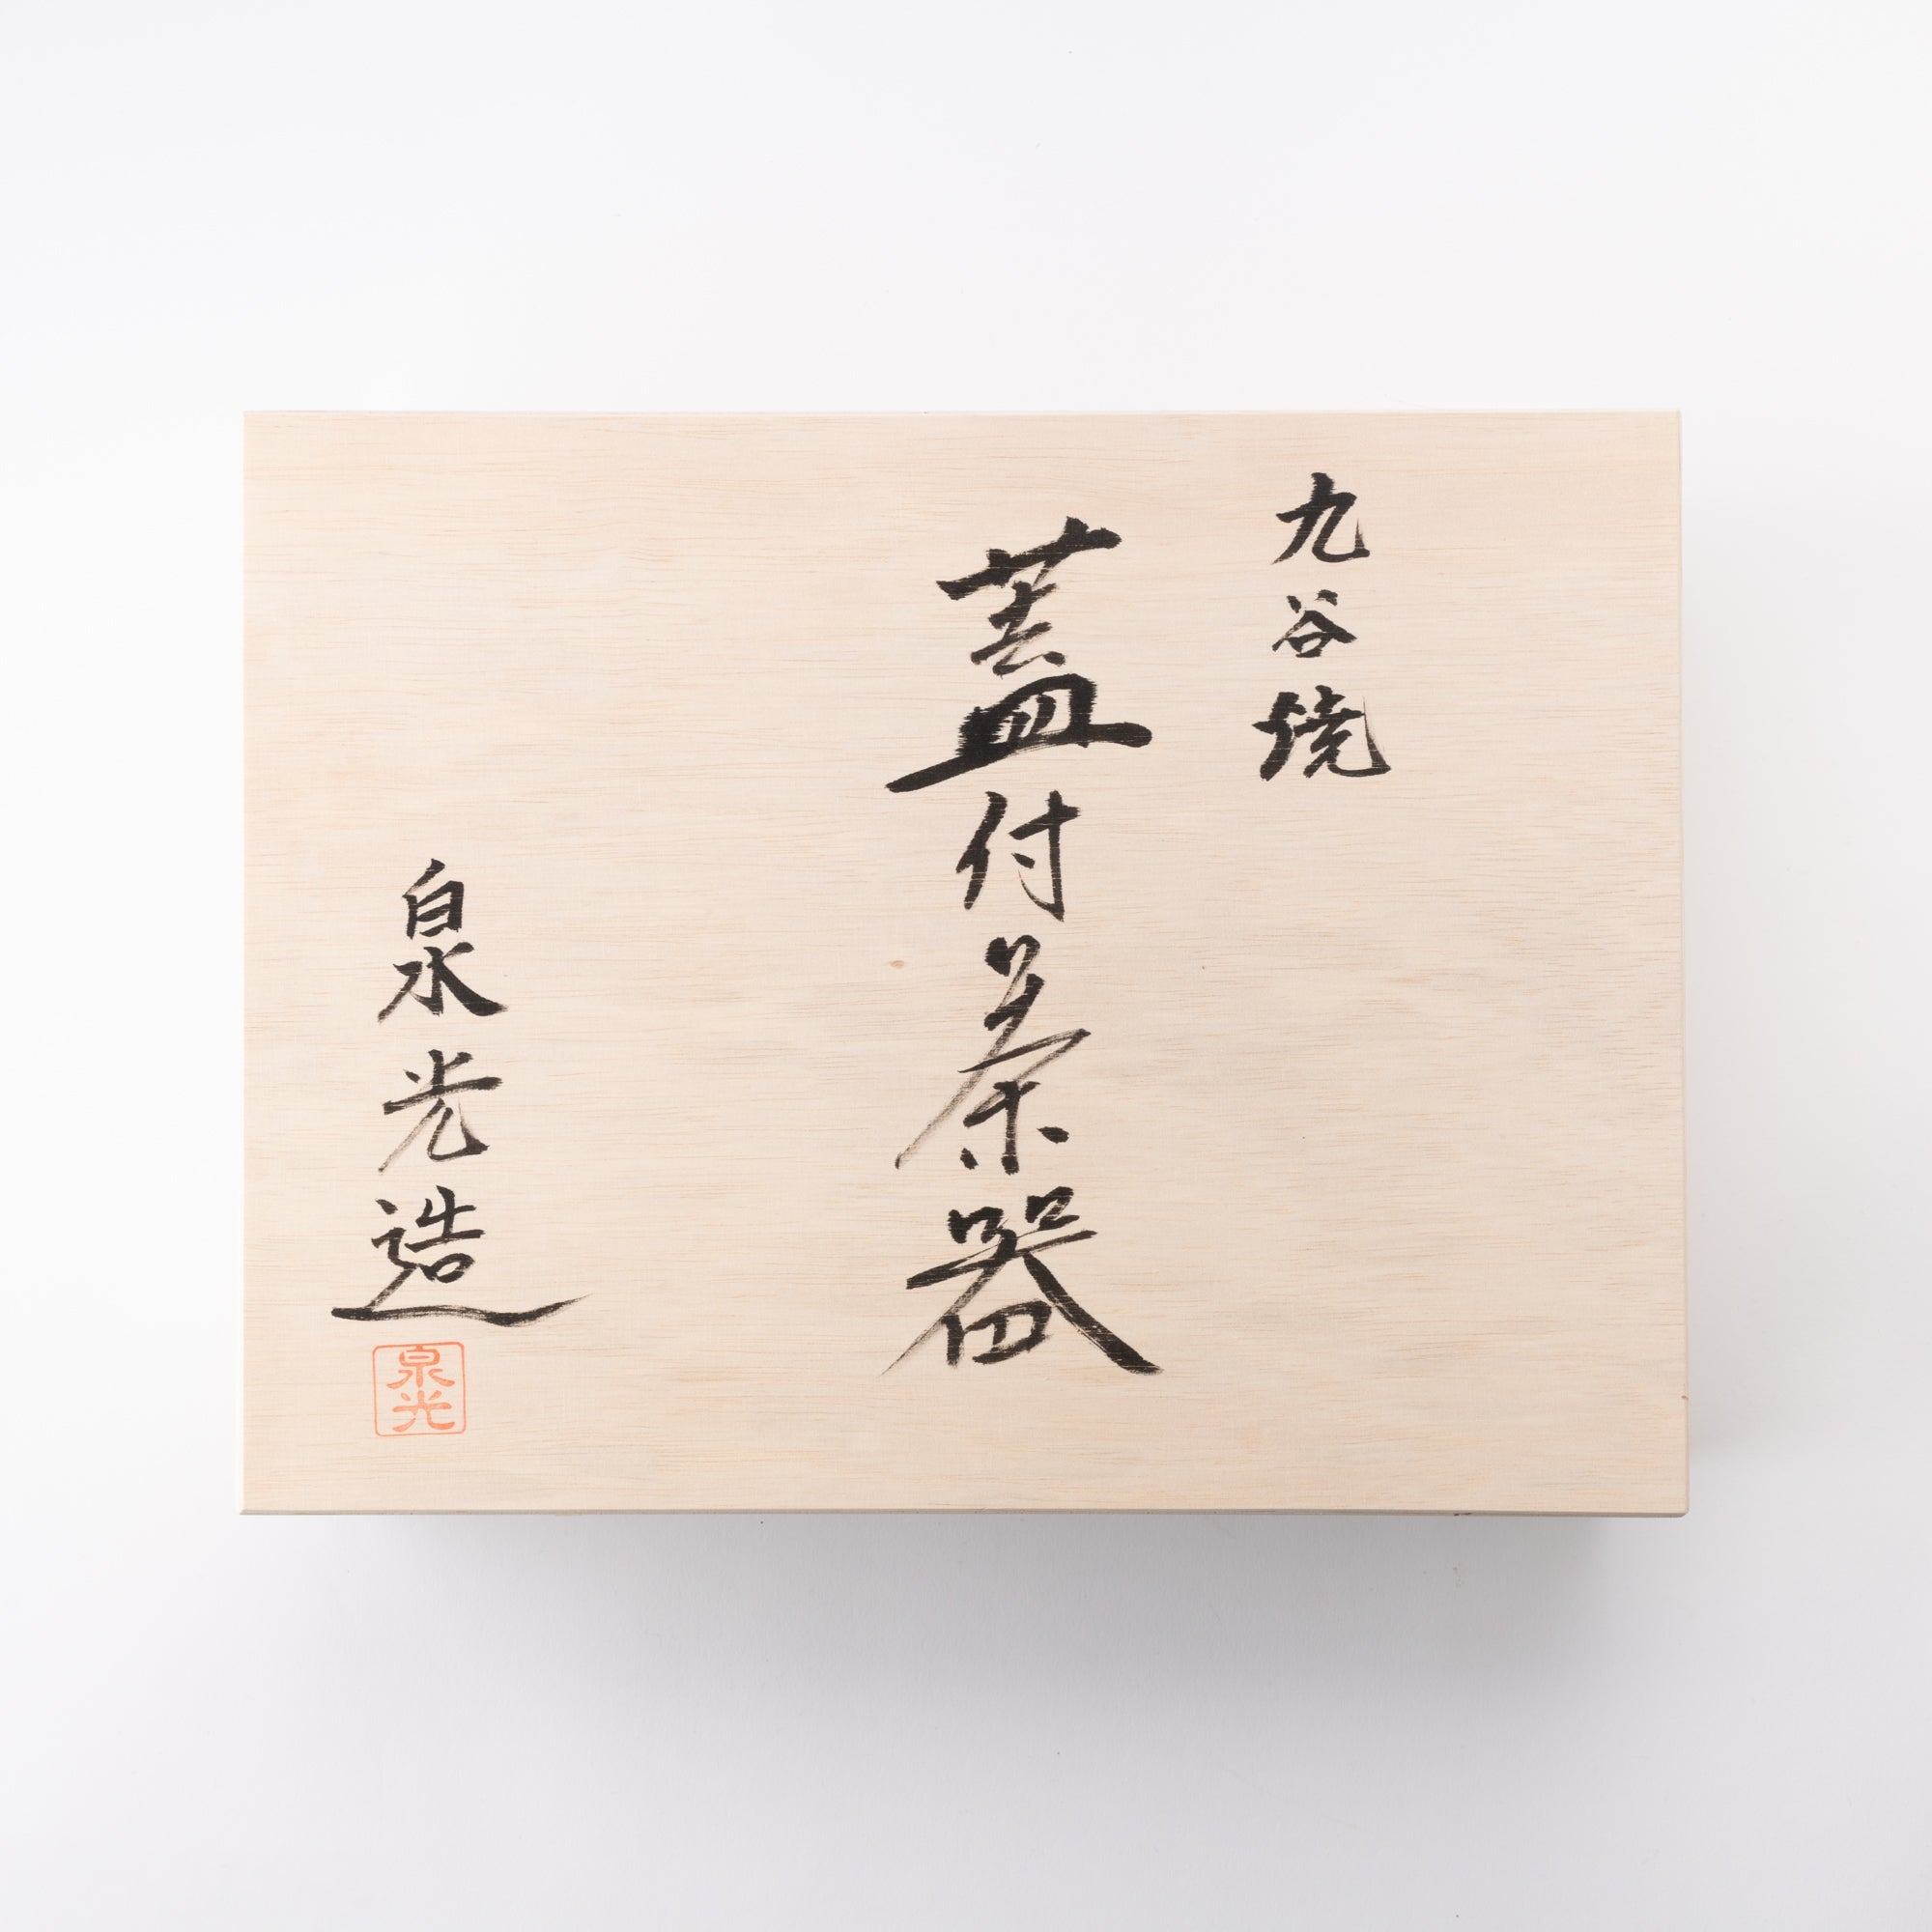 九谷焼
蓋付茶器
泉光造
泉光